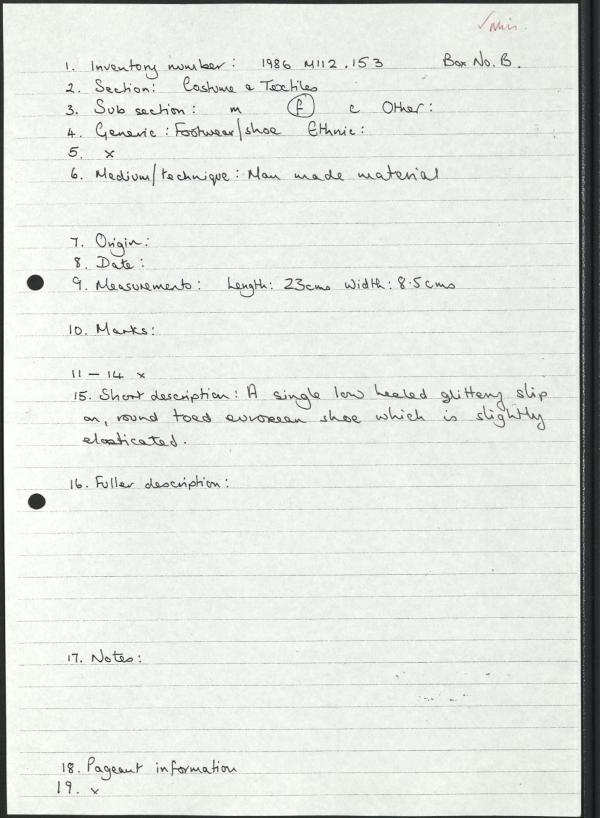 ✓ Min
1. Inventory number: 1986 M112.153 Box No. B.
2. Section: Costume & Textiles
3. Sub section: m f c Other:
4. Generic: Footwear/shoe Ethnic:
5. x
6. Medium/technique: Man made material
7. Origin:
8. Date:
9. Measurements: Length: 23cms Width: 8.5cms
10. Marks:
11 – 14 x
15. Short description: A single low healed glittery slip
on, round toed european shoe which is slightly
elasticated.
16. Fuller description:
17. Notes:
18. Pageant information
19. x